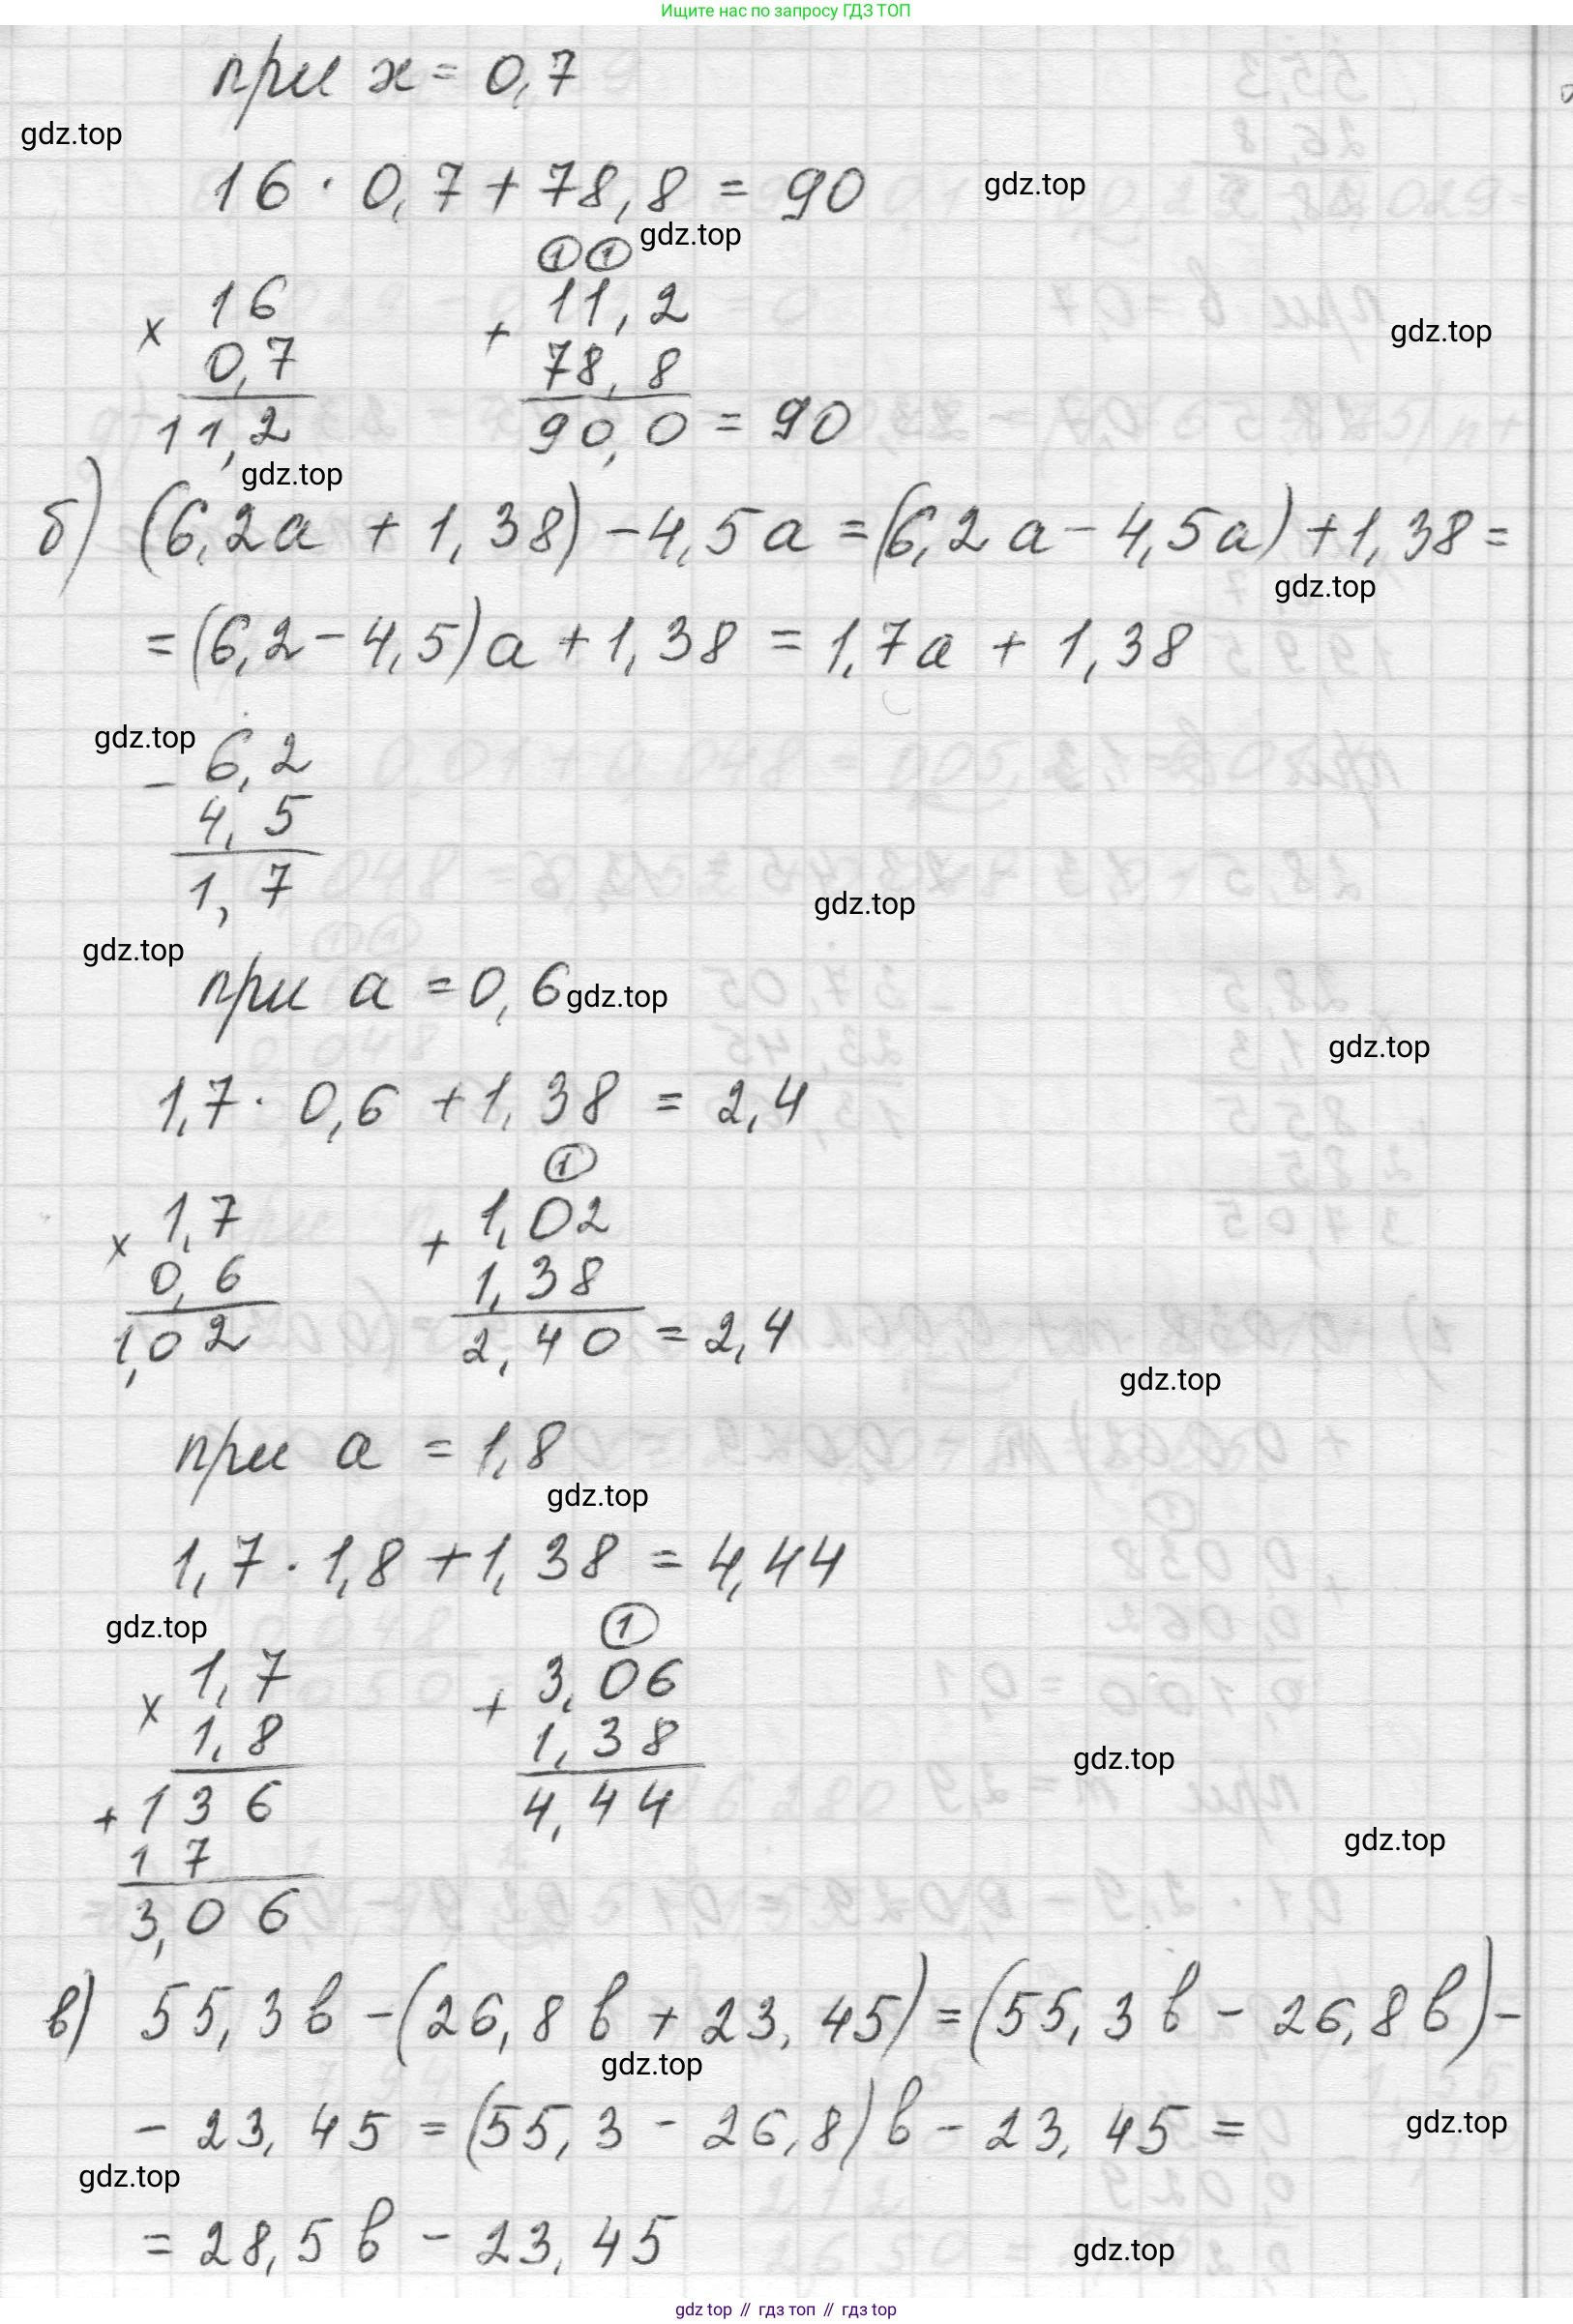 Ищите нас по запросу ГДЗ ТОП
при x = 0,7
gdz.top
16 · 0,7 + 78,8 = 90
gdz.top
① ①
gdz.top
× 16
0,7
11,2
+ 11,2
78,8
90,0 = 90
gdz.top
gdz.top
б) (6,2a + 1,38) - 4,5a = (6,2a - 4,5a) + 1,38 =
gdz.top
= (6,2 - 4,5)a + 1,38 = 1,7a + 1,38
gdz.top
- 6,2
4,5
1,7
gdz.top
gdz.top
при a = 0,6
gdz.top
gdz.top
1,7 · 0,6 + 1,38 = 2,4
①
× 1,7
0,6
1,02
+ 1,02
1,38
2,40 = 2,4
gdz.top
при a = 1,8
gdz.top
1,7 · 1,8 + 1,38 = 4,44
gdz.top
①
× 1,7
1,8
+ 136
17
3,06
+ 3,06
1,38
4,44
gdz.top
gdz.top
в) 55,3в - (26,8в + 23,45) = (55,3в - 26,8в) -
gdz.top
- 23,45 = (55,3 - 26,8)в - 23,45 =
gdz.top
gdz.top
= 28,5в - 23,45
gdz.top
gdz top // гдз топ // гдз top